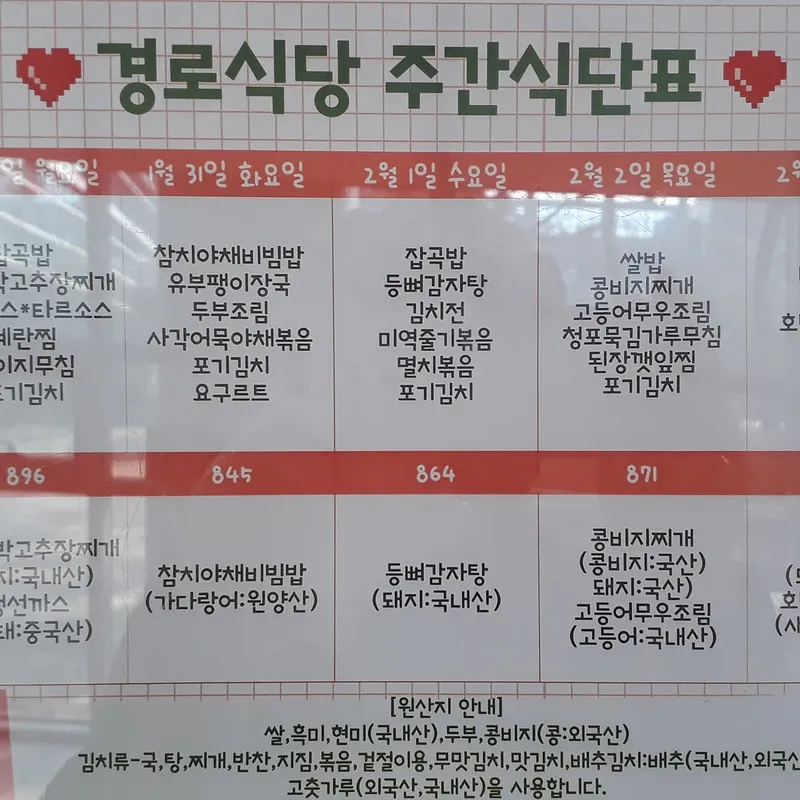 경로식당 주간식단표
월요일
1월 31일 화요일
2월 1일 수요일
2월 2일 목요일
잡곡밥
박고추장찌개
스*타르소스
계란찜
이지무침
포기김치
참치야채비빔밥
유부팽이장국
두부조림
사각어묵야채볶음
포기김치
요구르트
잡곡밥
등뼈감자탕
김치전
미역줄기볶음
멸치볶음
포기김치
쌀밥
콩비지찌개
고등어무우조림
청포묵김가루무침
된장깻잎찜
포기김치
896
845
864
871
박고추장찌개
지:국내산)
생선까스
태:중국산)
참치야채비빔밥
(가다랑어:원양산)
등뼈감자탕
(돼지:국내산)
콩비지찌개
(콩비지:국산)
돼지:국산)
고등어무우조림
(고등어:국내산)
[원산지 안내]
쌀,흑미,현미(국내산),두부,콩비지(콩:외국산)
김치류-국,탕,찌개,반찬,지짐,볶음,겉절이용,무맛김치,맛김치,배추김치:배추(국내산,외국산
고춧가루(외국산,국내산)을 사용합니다.